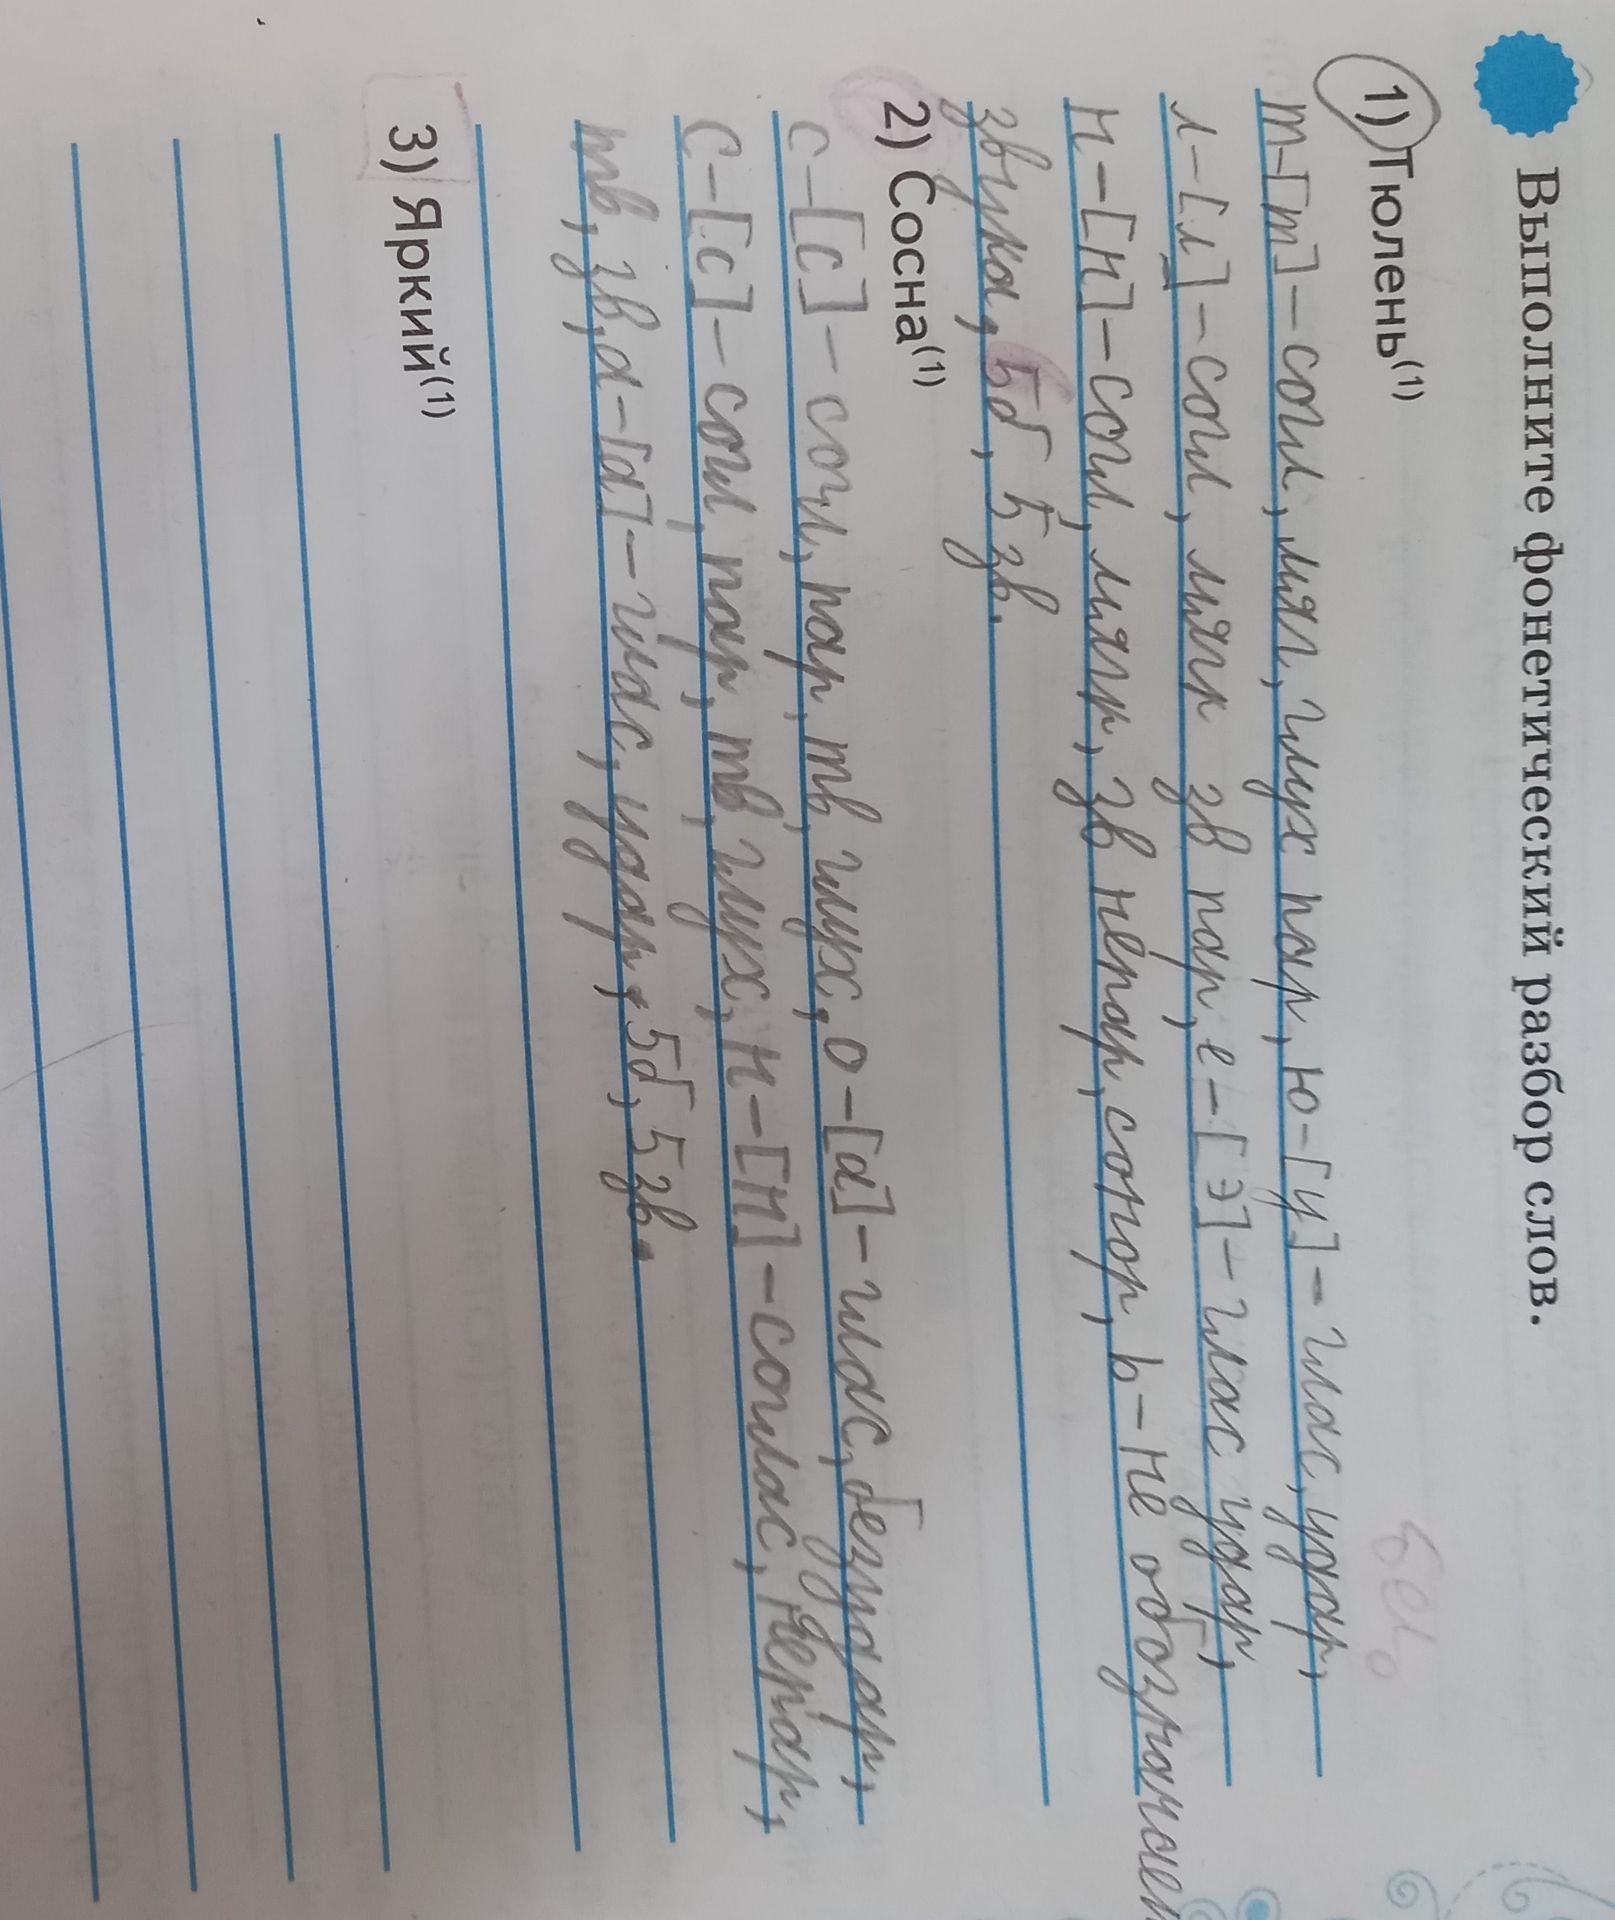 Выполните фонетический разбор слов.
1) Тюлень(1)
т-[т]-согл, мяг, глух пар, ю-[у]-глас, удар,
л-[л]-согл, мягк зв пар, е-[э]-глас удар,
н-[н]-согл, мягк, зв непар, сонор, ь-не обозначает
звука, 5б, 5 зв.
2) Сосна(1)
с-[с]-согл, пар, тв, глух, о-[а]-глас, безудар,
с-[с]-согл, пар, тв, глух, н-[н]-соглас, непар,
тв, зв, а-[а]-глас, удар, 5б, 5зв.
3) Яркий(1)